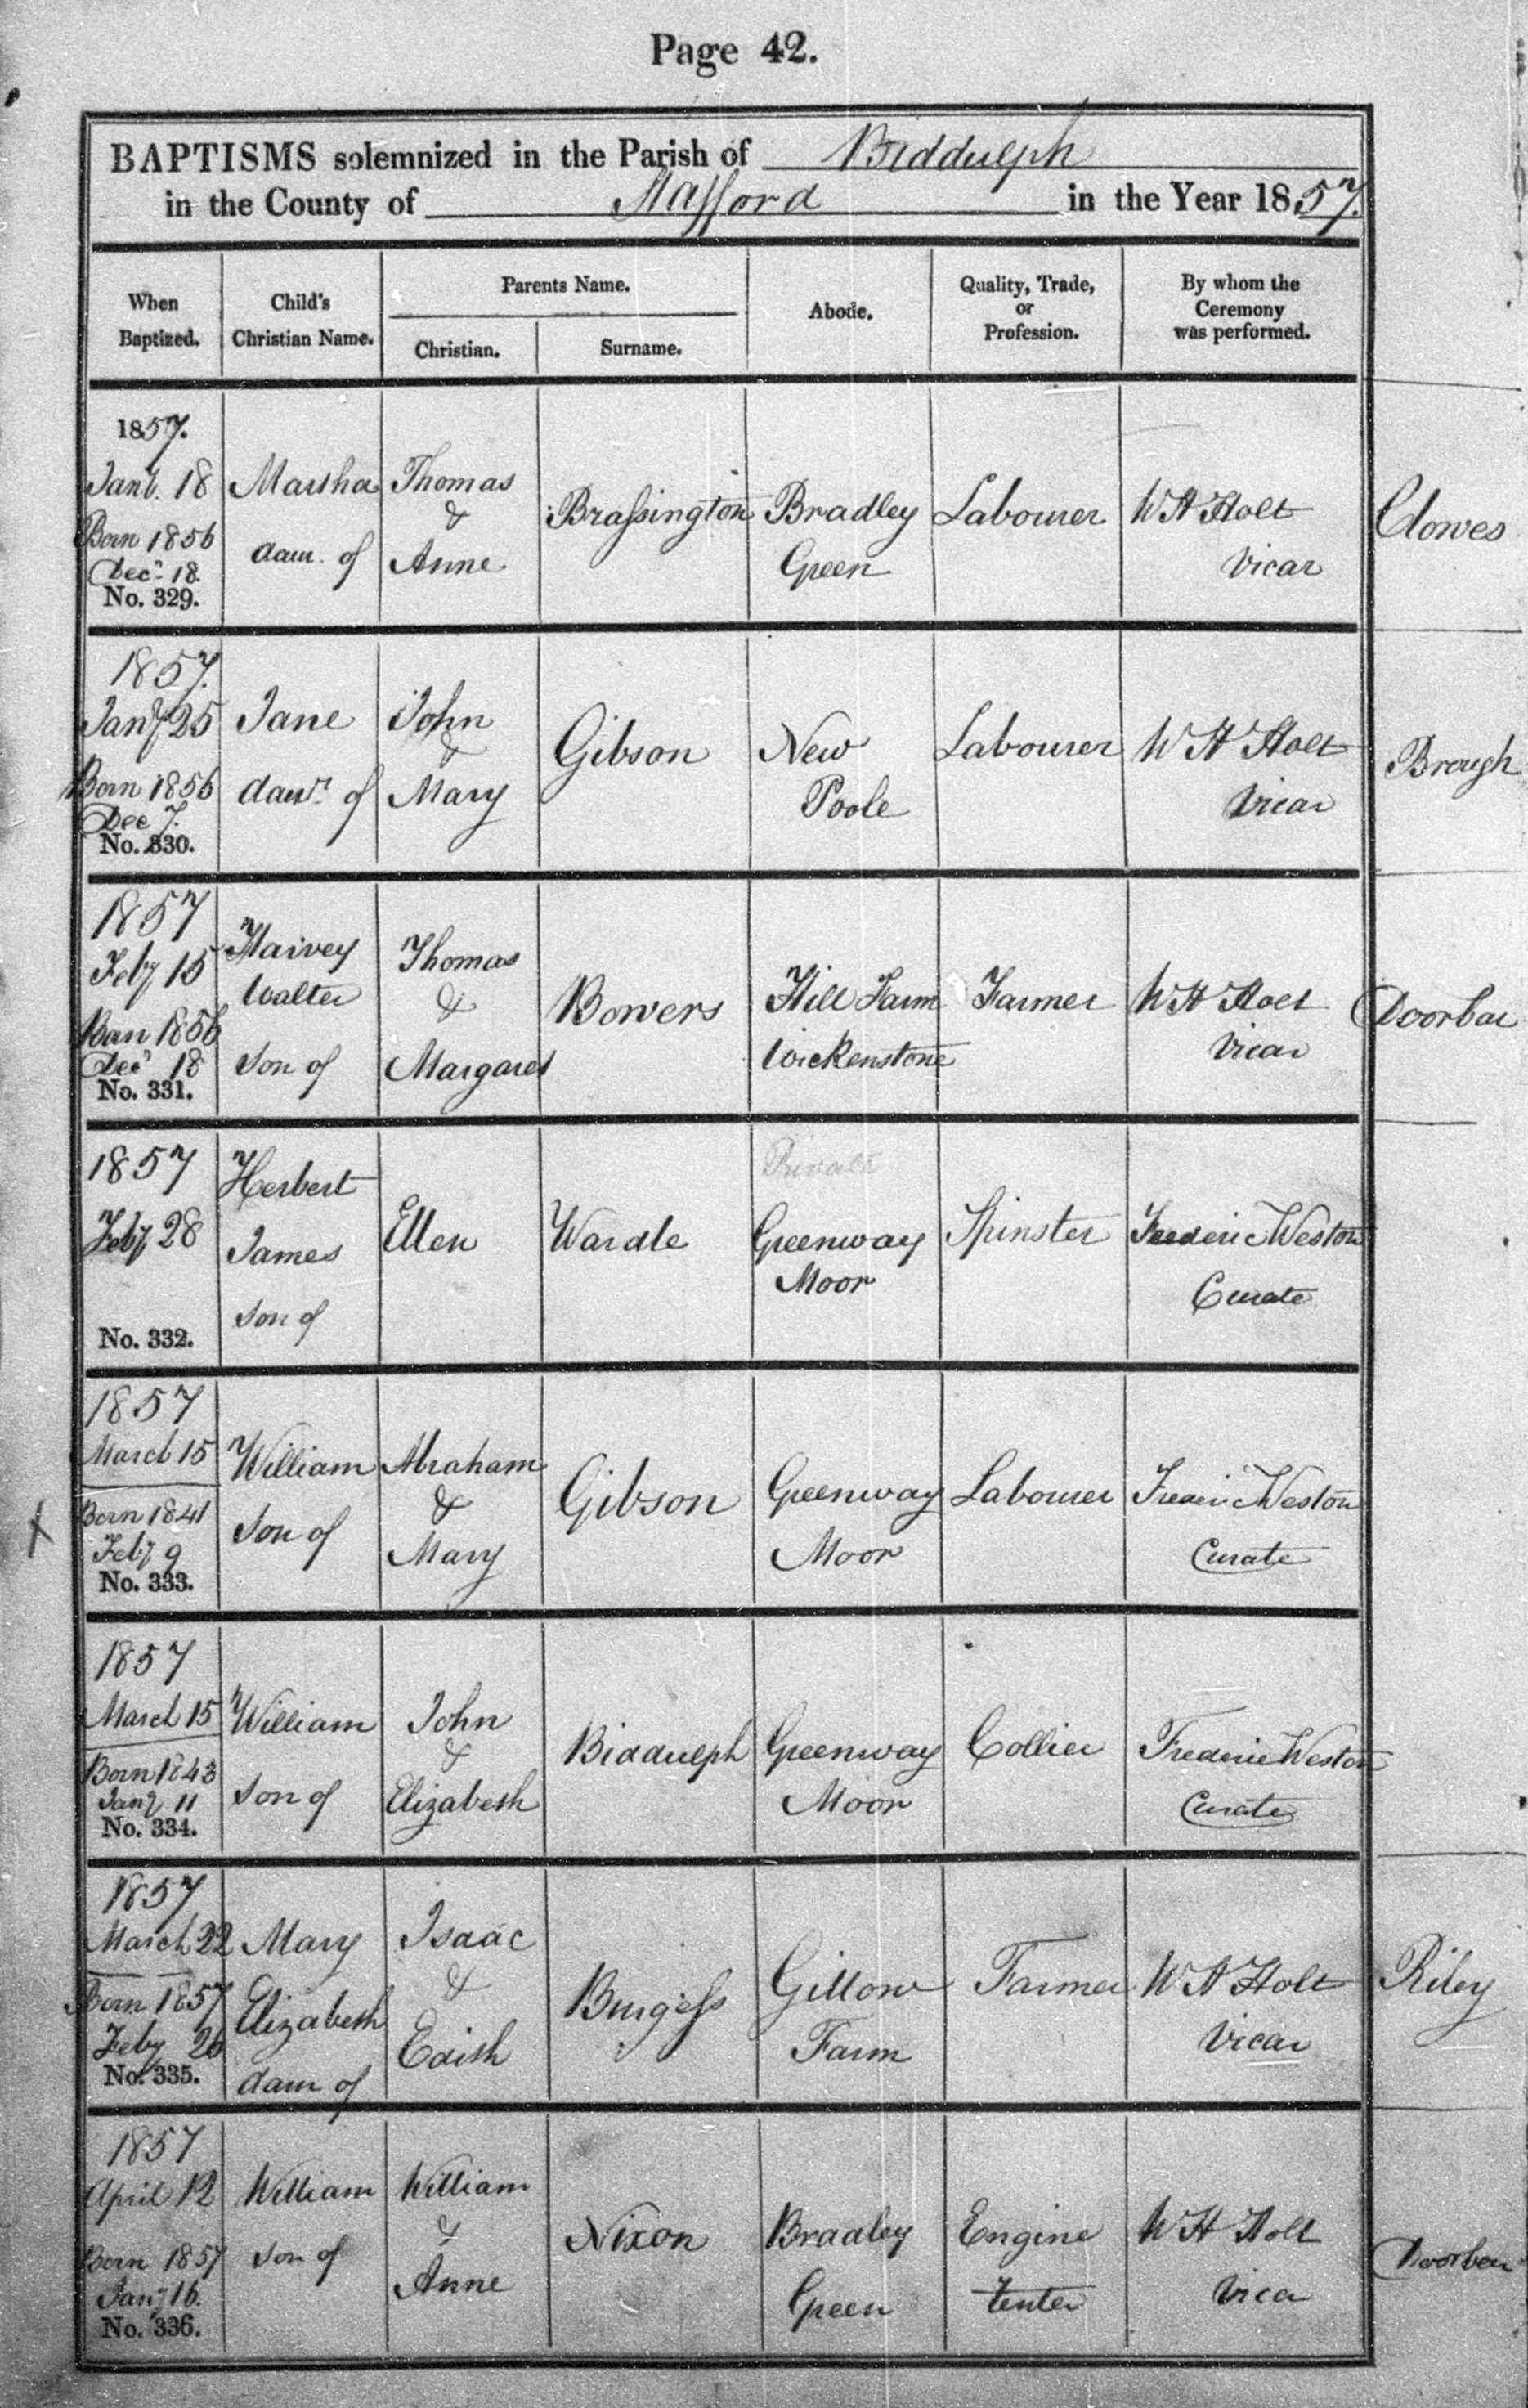 Page 42.
BAPTISMS solemnized in the Parish of Biddulph
in the County of Stafford in the Year 1857.
When Baptized.
Child's Christian Name.
Parents Name.
Christian.
Surname.
Abode.
Quality, Trade, or Profession.
By whom the Ceremony was performed.
1857.
Jany. 18
Born 1856
Decr. 18.
No. 329.
Martha
daur. of
Thomas
&
Anne
Brassington
Bradley
Green
Labourer
W H Holt
Vicar
Clowes
1857.
Jany 25
Born 1856
Dec 7.
No. 330.
Jane
daur. of
John
&
Mary
Gibson
New
Poole
Labourer
W H Holt
Vicar
Brough
1857
Feby 15
Born 1856
Decr 18
No. 331.
Harvey
Walter
Son of
Thomas
&
Margaret
Bowers
Hill Farm
Wickenstone
Farmer
W H Holt
Vicar
Doorbar
1857
Feby 28
No. 332.
Herbert
James
Son of
Ellen
Wardle
Private
Greenway
Moor
Spinster
Frederic Weston
Curate
1857
March 15
Born 1841
Feby 9
No. 333.
X
William
Son of
Abraham
&
Mary
Gibson
Greenway
Moor
Labourer
Frederic Weston
Curate
1857
March 15
Born 1843
Jany 11
No. 334.
William
Son of
John
&
Elizabeth
Biddulph
Greenway
Moor
Collier
Frederic Weston
Curate
1857
March 22
Born 1857
Feby 20
No. 335.
Mary
Elizabeth
daur of
Isaac
&
Edith
Burgess
Gillow
Farm
Farmer
W H Holt
Vicar
Riley
1857
April 12
Born 1857
Jany 16.
No. 336.
William
Son of
William
&
Anne
Nixon
Bradley
Green
Engine
tenter
W H Holt
Vicar
Doorbar